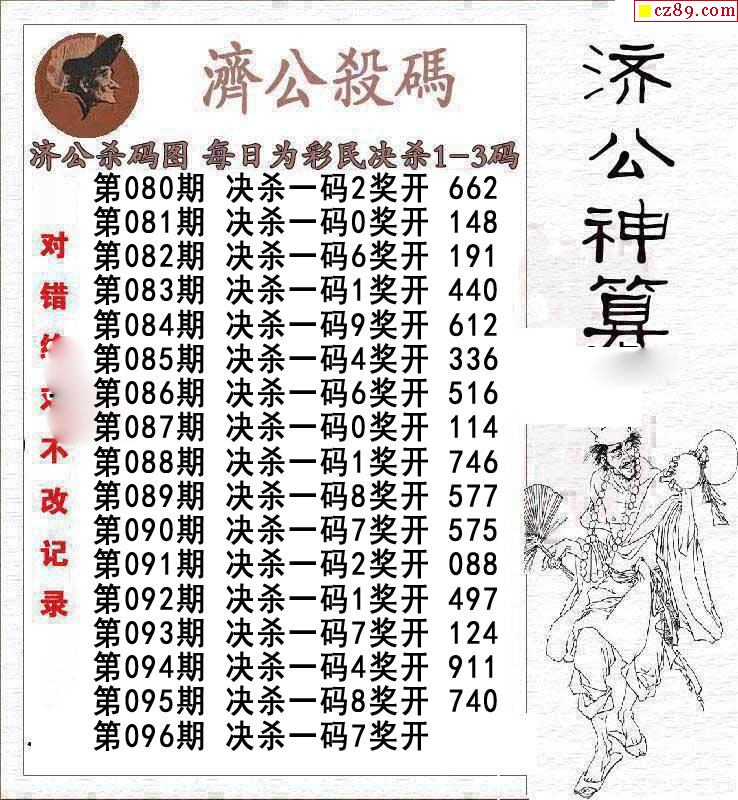 cz89.com
濟公殺碼
济公杀码图 每日为彩民决杀1-3码
第080期 决杀一码2奖开 662
第081期 决杀一码0奖开 148
第082期 决杀一码6奖开 191
第083期 决杀一码1奖开 440
第084期 决杀一码9奖开 612
第085期 决杀一码4奖开 336
第086期 决杀一码6奖开 516
第087期 决杀一码0奖开 114
第088期 决杀一码1奖开 746
第089期 决杀一码8奖开 577
第090期 决杀一码7奖开 575
第091期 决杀一码2奖开 088
第092期 决杀一码1奖开 497
第093期 决杀一码7奖开 124
第094期 决杀一码4奖开 911
第095期 决杀一码8奖开 740
第096期 决杀一码7奖开
对错不改记录
济公神算